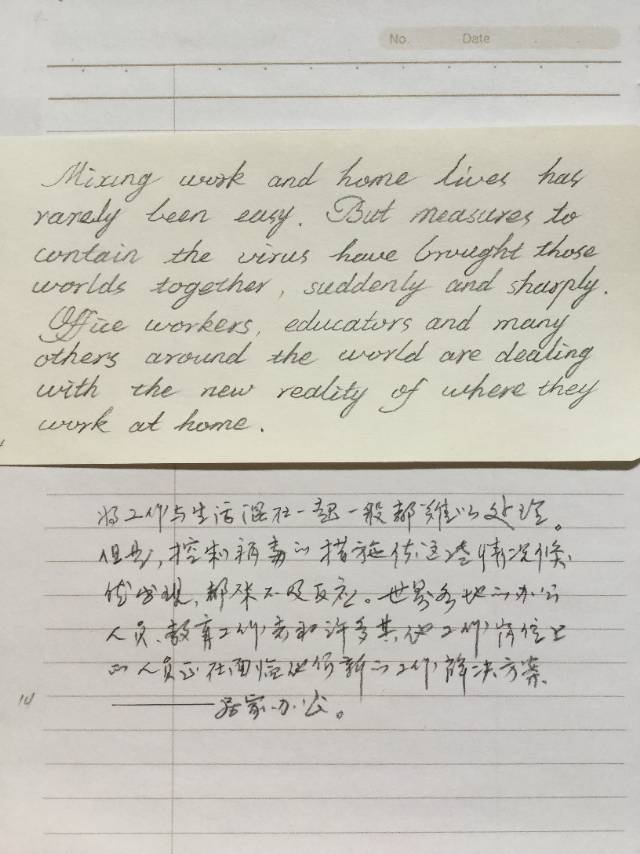 No. Date
Mixing work and home lives has
rarely been easy. But measures to
contain the virus have brought those
worlds together, suddenly and sharply.
Office workers, educators and many
others around the world are dealing
with the new reality of where they
work at home.
将工作与生活混在一起一般都难以处理。
但是,控制病毒的措施使这些情况倏
然出现,都来不及反应。世界各地的办公
人员、教育工作者和许多其他工作岗位上
的人员正在面临他们新的工作解决方案
——居家办公。
14